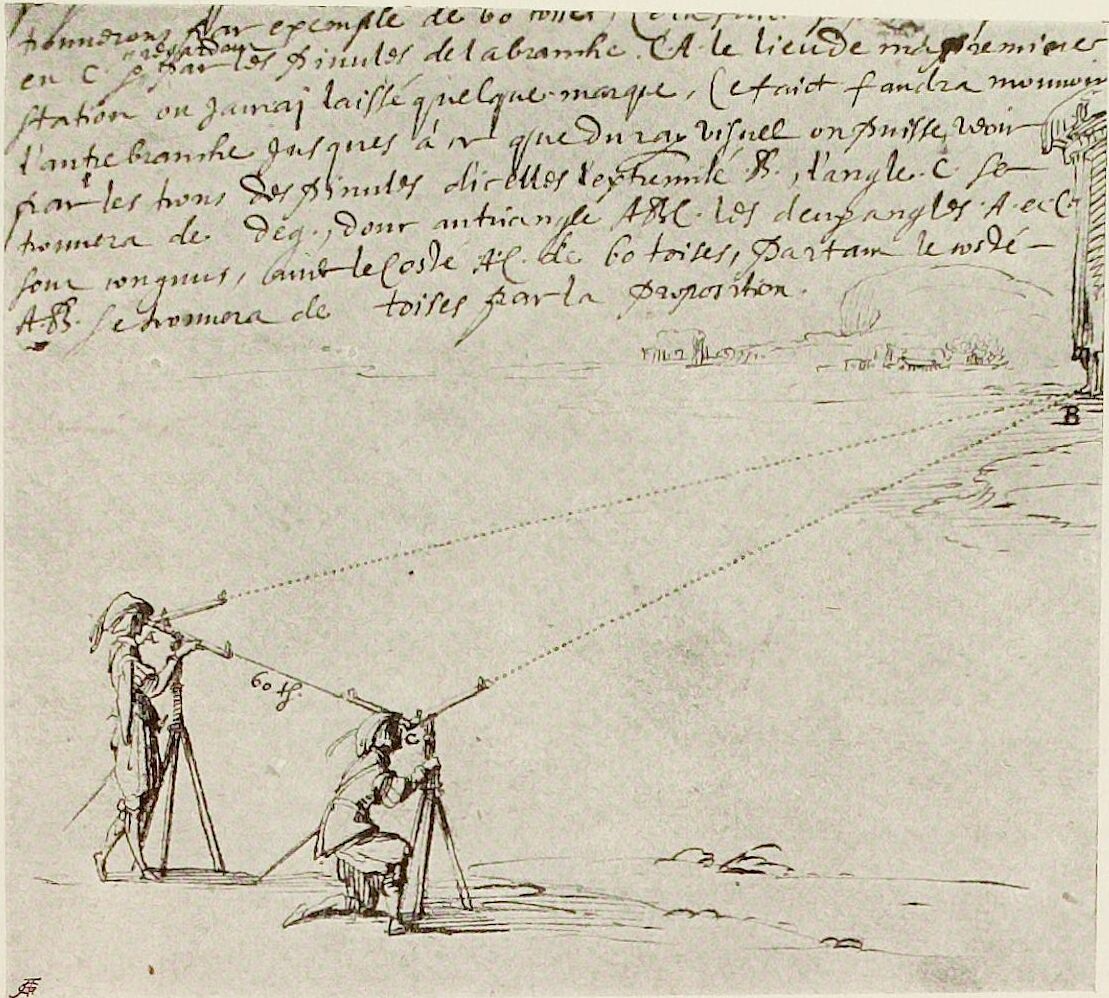 trouverons par exemple de 60 toises,
regardant
en C. & par les pinules de la branche C.A. le lieu de ma premiere
station ou jauraj laissé quelque marque, Cefaict faudra mouvoir
l'autre branche jusques à ce que du ray visuel on puisse veoir
par les trous des pinules dicelles l'extremité B., l'angle C se
trouvera de deg., donc au triangle ABC. les deux angles A et C
sont congnus, avec le Coste AC. de 60 toises, Partant le costé
AB. se trouvera de toises par la Proposition.
B
A
60 ts.
C